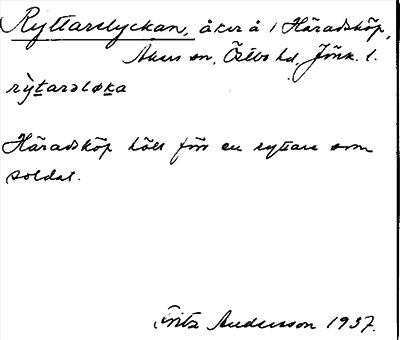 Ryttarelyckan, åker å 1 Häradsköp,
Akers sn, Östbo hd, Jönk. l.
rỳtarəløka
Häradsköp höll för en ryttare som
soldat.
Fritz Andersson 1937.